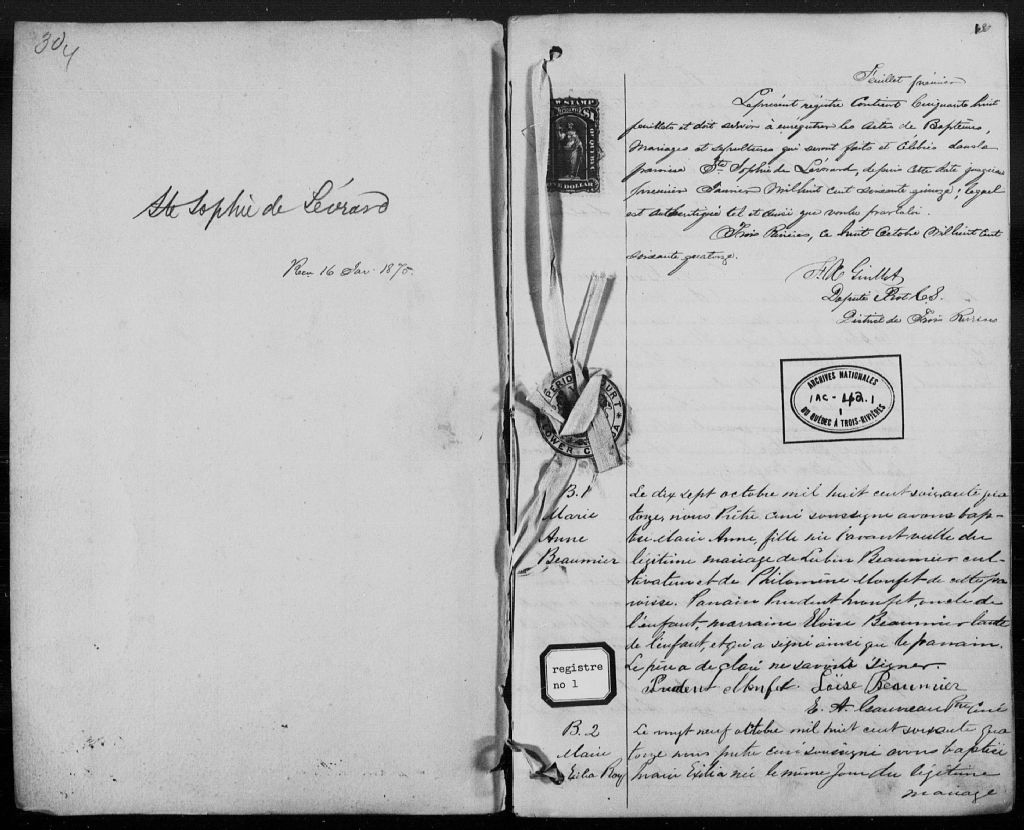 304
Ste Sophie de Lévrard
Rec. 16 Jan. 1875.
Feuillet premier
Le présent régistre contient Cinquante huit
feuillets et doit servir à enrégistrer les Actes de Baptêmes,
Mariages et sépultures qui seront faits et célébrés dans la
paroisse Ste Sophie de Lévrard, depuis cette date jusqu'au
premier Janvier Mil huit cent soixante quinze; lequel
est authentiqué tel et ainsi que voulu par la loi.
Trois Rivières, ce huit Octobre Mil huit cent
soixante quatorze.
F. X. Guillet
Député Prot. C. S.
District de Trois Rivières
W STAMP
OF QUEBEC
ONE DOLLAR
SUPERIOR COURT
LOWER CANADA
ARCHIVES NATIONALES
1AC-42.1
1
DU QUÉBEC À TROIS-RIVIÈRES
B. 1
Marie
Anne
Beaumier
Le dix sept octobre mil huit cent soixante qua
torze, nous Prêtre curé soussigné avons bap-
tisé Marie Anne, fille née l'avant veille du
légitime mariage de Lubin Beaumier cul-
tivateur et de Philomène Monfet de cette pa
roisse. Parrain Prudent Monfet, oncle de
l'enfant, marraine Eloïse Beaumier tante
de l'enfant, et qui a signé ainsi que le parrain.
Le père a déclaré ne savoir signer.
Prudent Monfet. Loïse Beaumier
E. A. Ptre Curé
registre
no 1
B. 2
Marie
Exilia Roy
Le vingt neuf octobre mil huit cent soixante qua
torze nous prêtre curé soussigné avons baptisé
Marie Exilia née le même jour du légitime
mariage